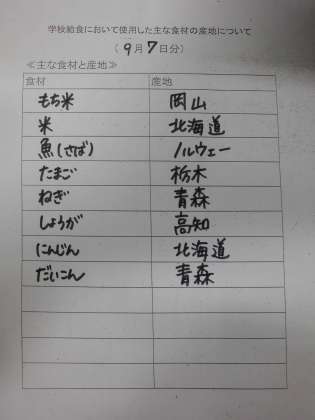 学校給食において使用した主な食材の産地について
（9月7日分）
≪主な食材と産地≫
食材 産地
もち米 岡山
米 北海道
魚(さば) ノルウェー
たまご 栃木
ねぎ 青森
しょうが 高知
にんじん 北海道
だいこん 青森